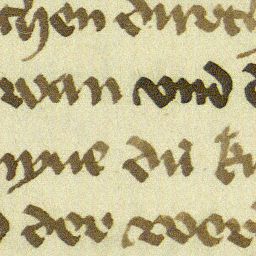 chen durch
wan vnd
myne du
der wer